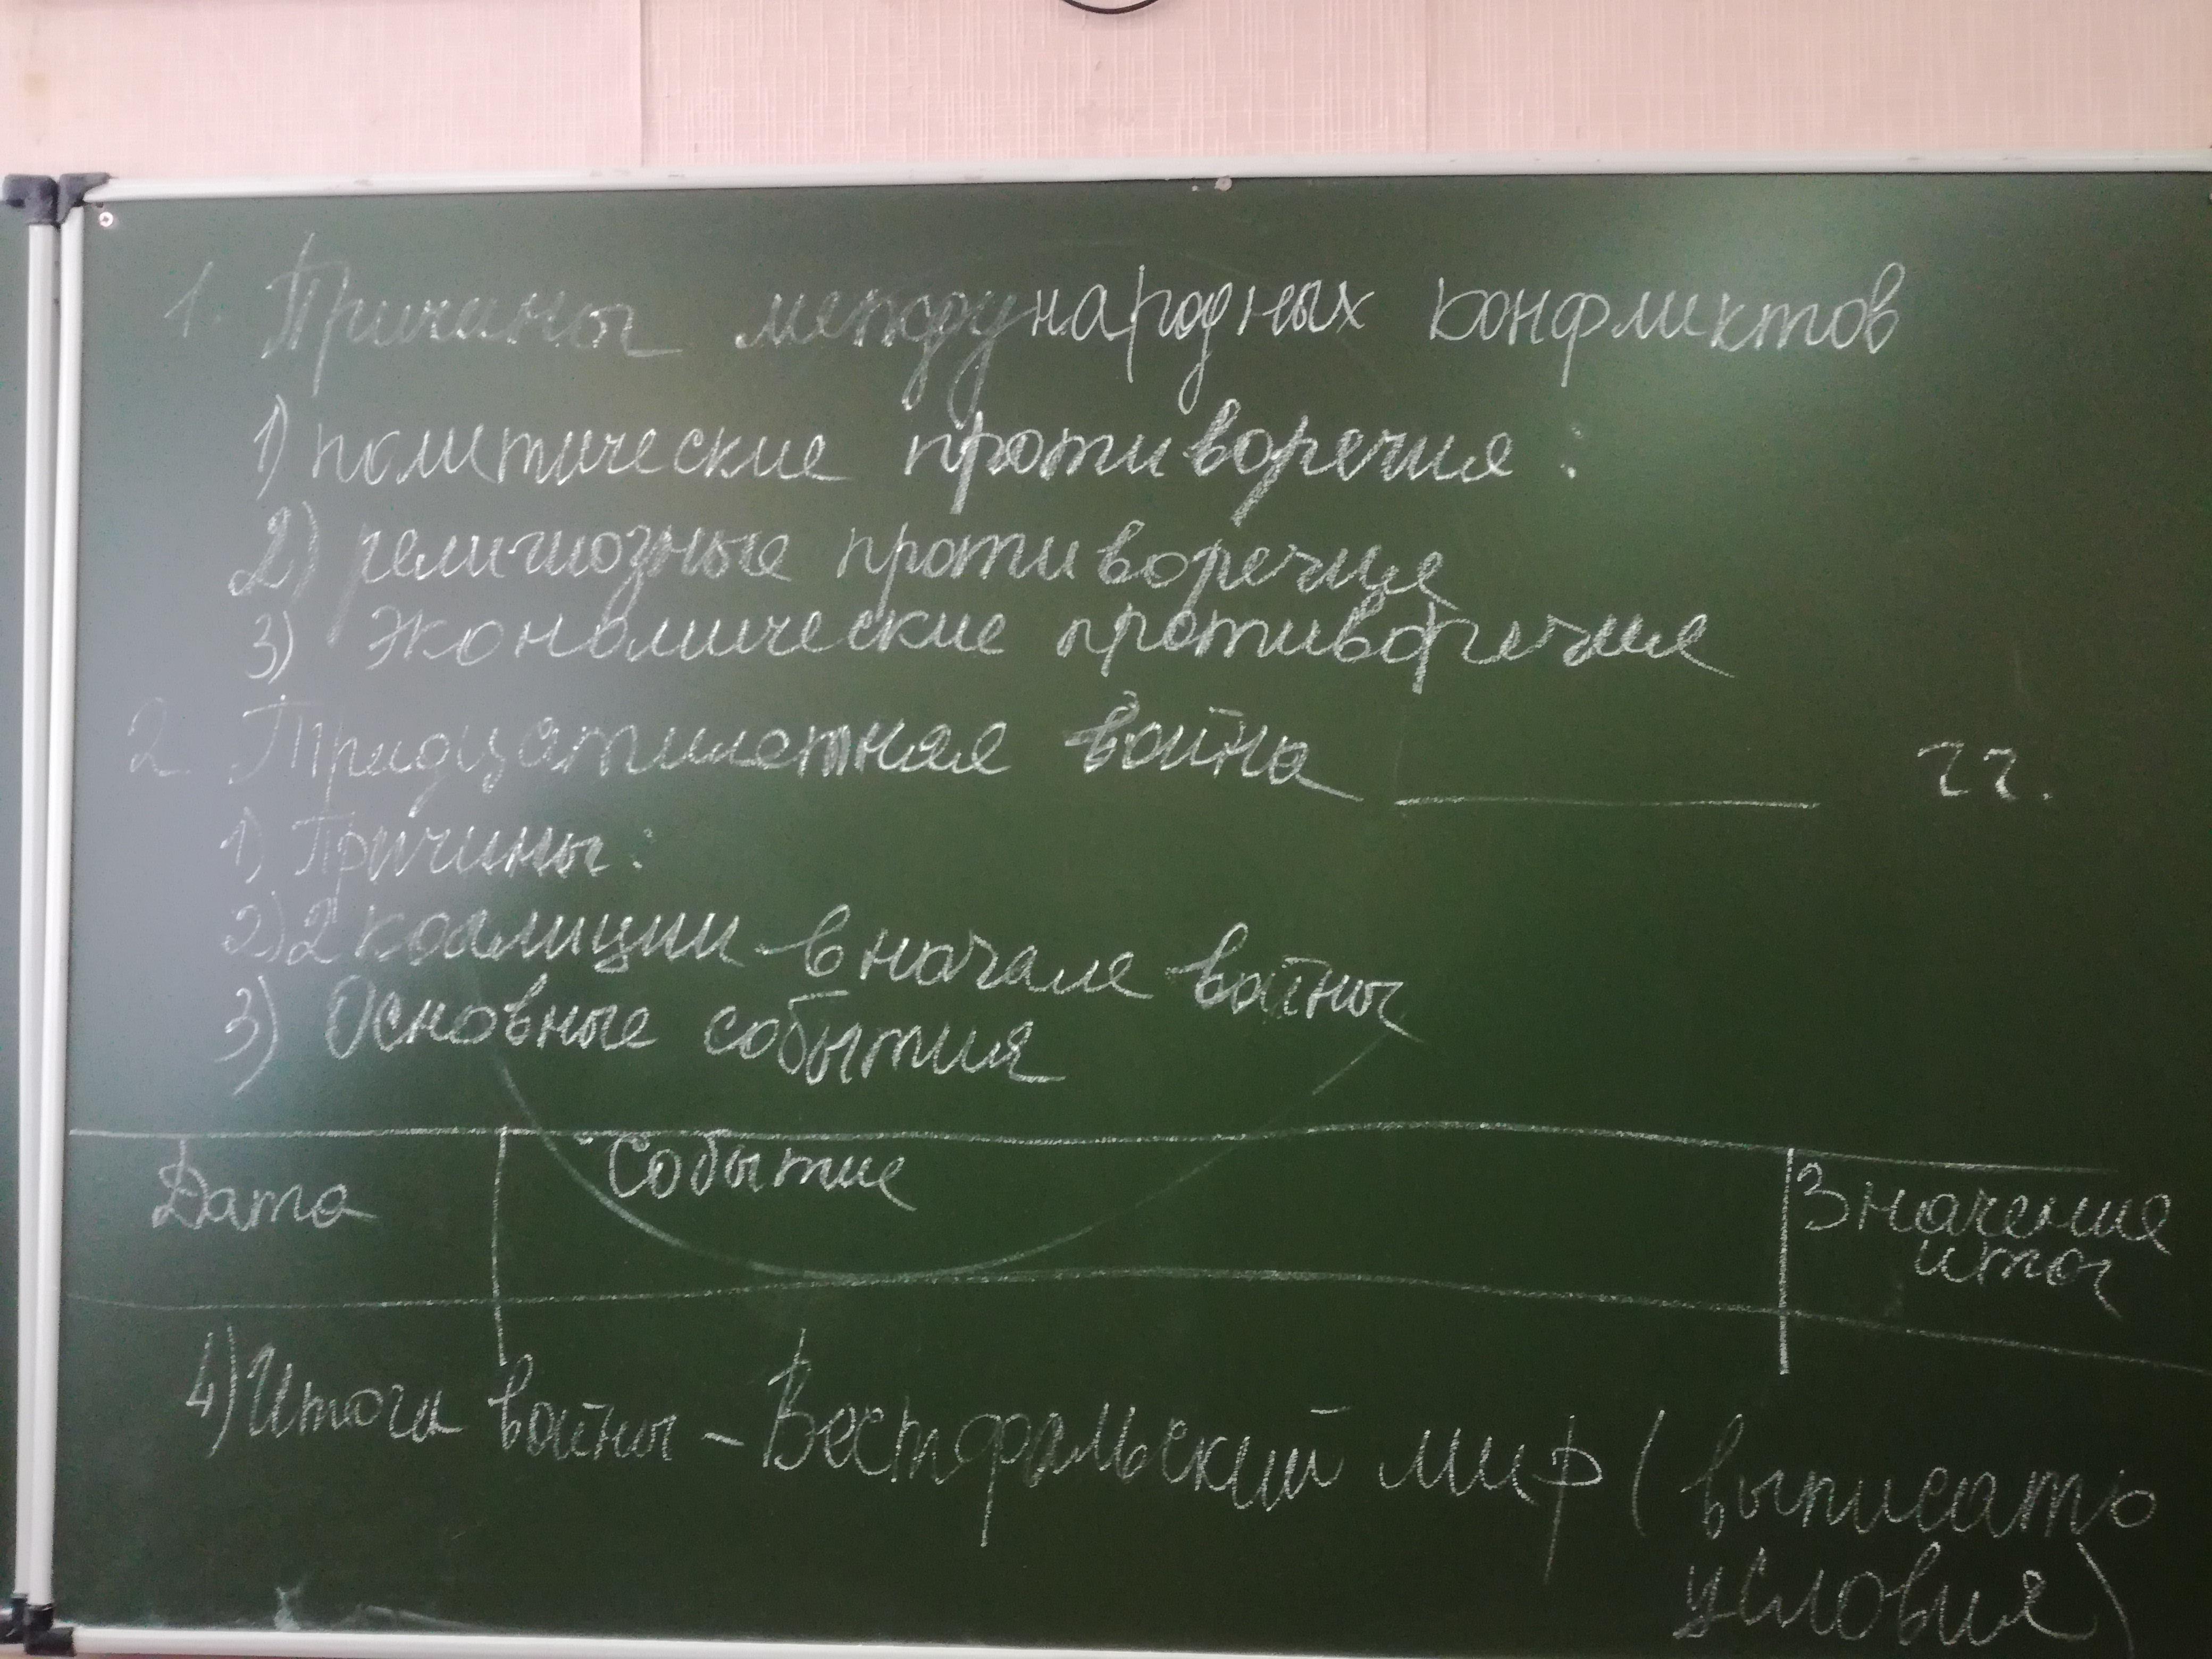 1. Причины международных конфликтов
1) политические противоречия:
2) религиозные противоречия
3) экономические противоречия
2. Тридцатилетняя война ________ гг.
1) Причины:
2) 2 коалиции в начале войны
3) Основные события
Дата Событие Значение
итог
4) Итоги войны - Вестфальский мир (выписать
условия)